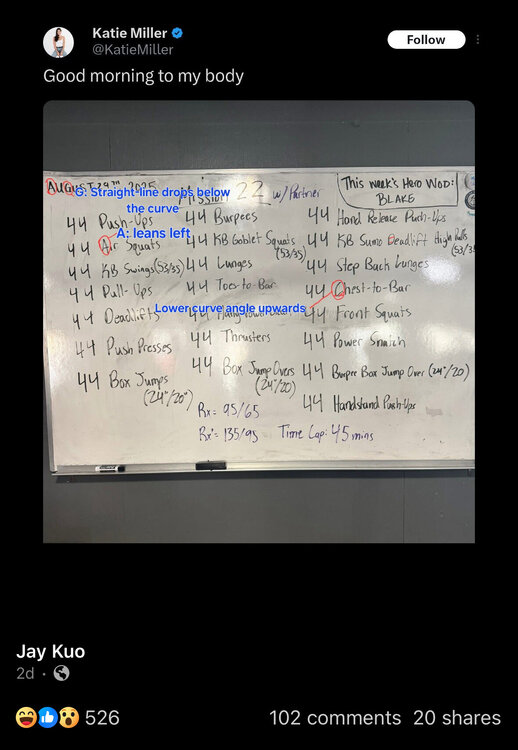 Katie Miller
@KatieMiller
Follow
Good morning to my body
AUGUST 29TH, 2025
Mission 22 w/ Partner
This week's Hero WOD:
BLAKE
G: Straight-line drops below
the curve
A: leans left
Lower curve angle upwards
44 Push-Ups
44 Air Squats
44 KB Swings (53/35)
44 Pull-Ups
44 Deadlifts
44 Push Presses
44 Box Jumps
(24"/20")
44 Burpees
44 KB Goblet Squats
(53/35)
44 Lunges
44 Toes-to-Bar
44
44 Thrusters
44 Box Jump Overs
(24"/20)
44 Hand Release Push-Ups
44 KB Sumo Deadlift High Pulls
44 Step Back Lunges
44 Chest-to-Bar
44 Front Squats
44 Power Snatch
44 Burpee Box Jump Over (24"/20)
44 Handstand Push-Ups
Rx = 95/65
Rx+ = 135/95
Time Cap: 45 mins
Jay Kuo
2d
526
102 comments
20 shares